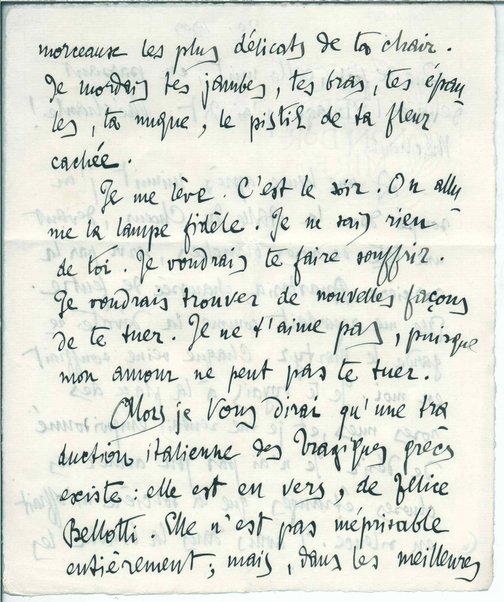 morceaux les plus délicats de ta chair.
Je mordais tes jambes, tes bras, tes épau
les, ta nuque, le pistil de ta fleur
cachée.
Je me lève. C'est le soir. On allu
me la lampe fidèle. Je ne sais rien
de toi. Je voudrais te faire souffrir.
Je voudrais trouver de nouvelles façons
de te tuer. Je ne t'aime pas, puisque
mon amour ne peut pas te tuer.
Alors je vous dirai qu'une tra
duction italienne des tragiques grecs
existe : elle est en vers, de Felice
Bellotti. Elle n'est pas méprisable
entièrement ; mais, dans les meilleures